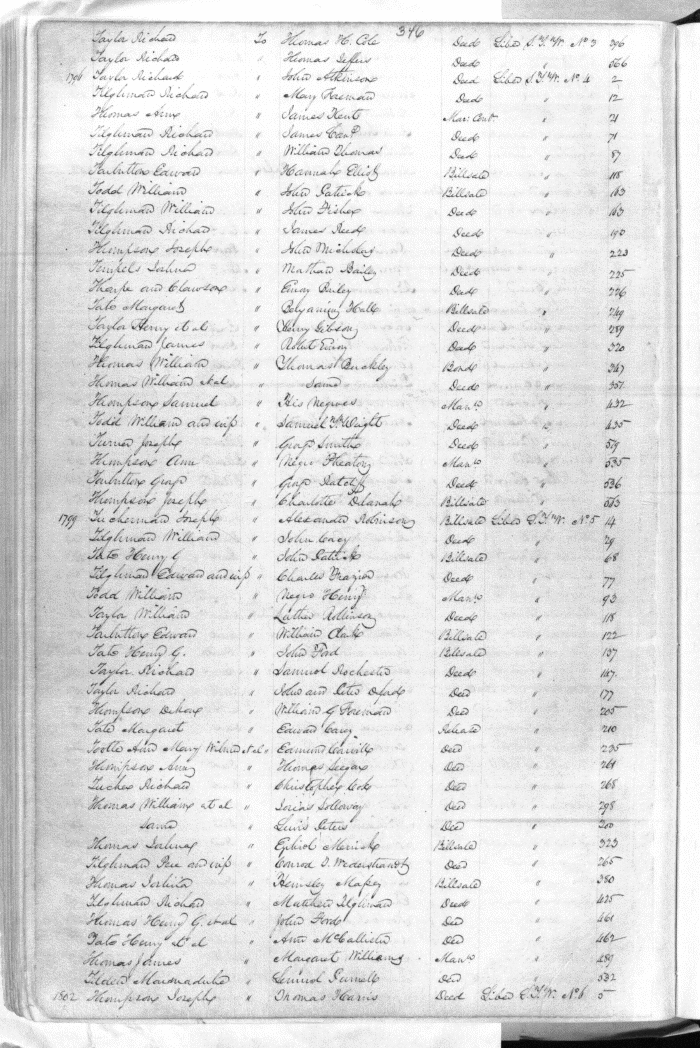 346
Taylor Richard To Thomas H. Cole Deed Liber S.T.W. No 3 296
Taylor Richard " Thomas Seffers Deed " 566
1796 Taylor Richard " John Atkinson Deed Liber S.T.W. No 4 2
Tilghman Richard " Mary Foreman Deed " 12
Thomas Ann " James Kent Mar: Cont. " 21
Tilghman Richard " James Deed " 71
Tilghman Richard " William Thomas Deed " 87
Tarbutton Edward " Hannah Billsale " 118
Todd William " John Patrick Billsale " 163
Tilghman William " John Fisher Deed " 163
Tilghman Richard " James Reed Deed " 190
Thompson Joseph " John Nicholas Deed " 223
" Nathan Baily Deed " 225
Tharpe and Clawson " Deed " 226
Tate Margaret " Benjamin Hall Billsale " 249
Taylor Henry et al " Henry Gibson Deed " 289
Tilghman James " Robert Deed " 320
Thomas William " Thomas Buckley Bond " 347
Thomas William et al " same Deed " 357
Thompson Samuel " His Negroes Manso " 432
Todd William and wife " Samuel Wright Deed " 435
Turner Joseph " Geog Smith Deed " 529
Thompson Ann " Negro Manso " 535
Tarbutton Geog " Geog Deed " 536
Thompson Joseph " Charlotte Delanah Billsale " 563
1799 Tuckerman Joseph " Alexander Robinson Billsale Liber S.T.W. No 5 14
Tilghman William " John Deed " 29
Tate Henry G " John Patrick Billsale " 68
Tilghman Edward and wife " Charles Frazier Deed " 77
Todd William " Negro Henry Manso " 93
Taylor William " Luther Robinson Deed " 118
Tarbutton Edward " William Clark Billsale " 122
Tate Henry G. " John Ford Billsale " 137
Taylor Richard " Samuel Rochester Deed " 147
Taylor Richard " John and Peter Deford Deed " 177
Thompson " William G Foreman Deed " 205
Tate Margaret " Edward Release " 210
Ann Mary et al " Edmund Deed " 225
Thompson Ann " Thomas Seegar Deed " 261
Tucker Richard " Christopher Cox Deed " 268
Thomas William et al " Josias Solloway Deed " 298
same " Lewis Peters Deed " 300
Thomas Joshua " Merrick Billsale " 323
Tilghman and wife " Conrad Deed " 265
Thomas " Hemsley Billsale " 380
Tilghman Richard " Matthew Tilghman Deed " 425
Thomas Henry G. et al " John Ford Deed " 461
Tate Henry et al " Ann McCallister Deed " 462
Thomas James " Margaret Williams Manso " 489
Tilden Marmaduke " Lemuel Purnell Deed " 532
1802 Thompson Joseph " Thomas Harris Deed Liber S.T.W. No 6 5